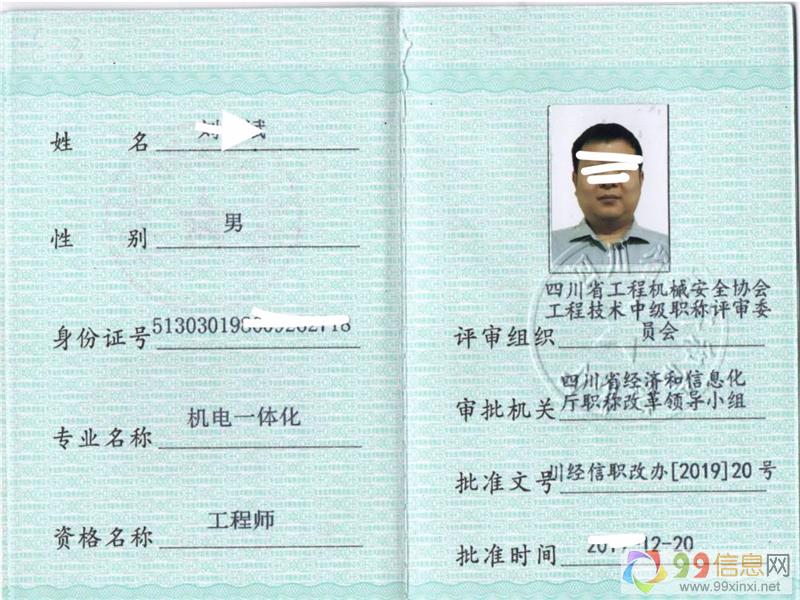 姓 名
性 别 男
身份证号
专业名称 机电一体化
资格名称 工程师
评审组织 四川省工程机械安全协会
工程技术中级职称评审委
员会
审批机关 四川省经济和信息化
厅职称改革领导小组
批准文号 川经信职改办[2019]20号
批准时间 12-20
99信息网
www.99xinxi.net